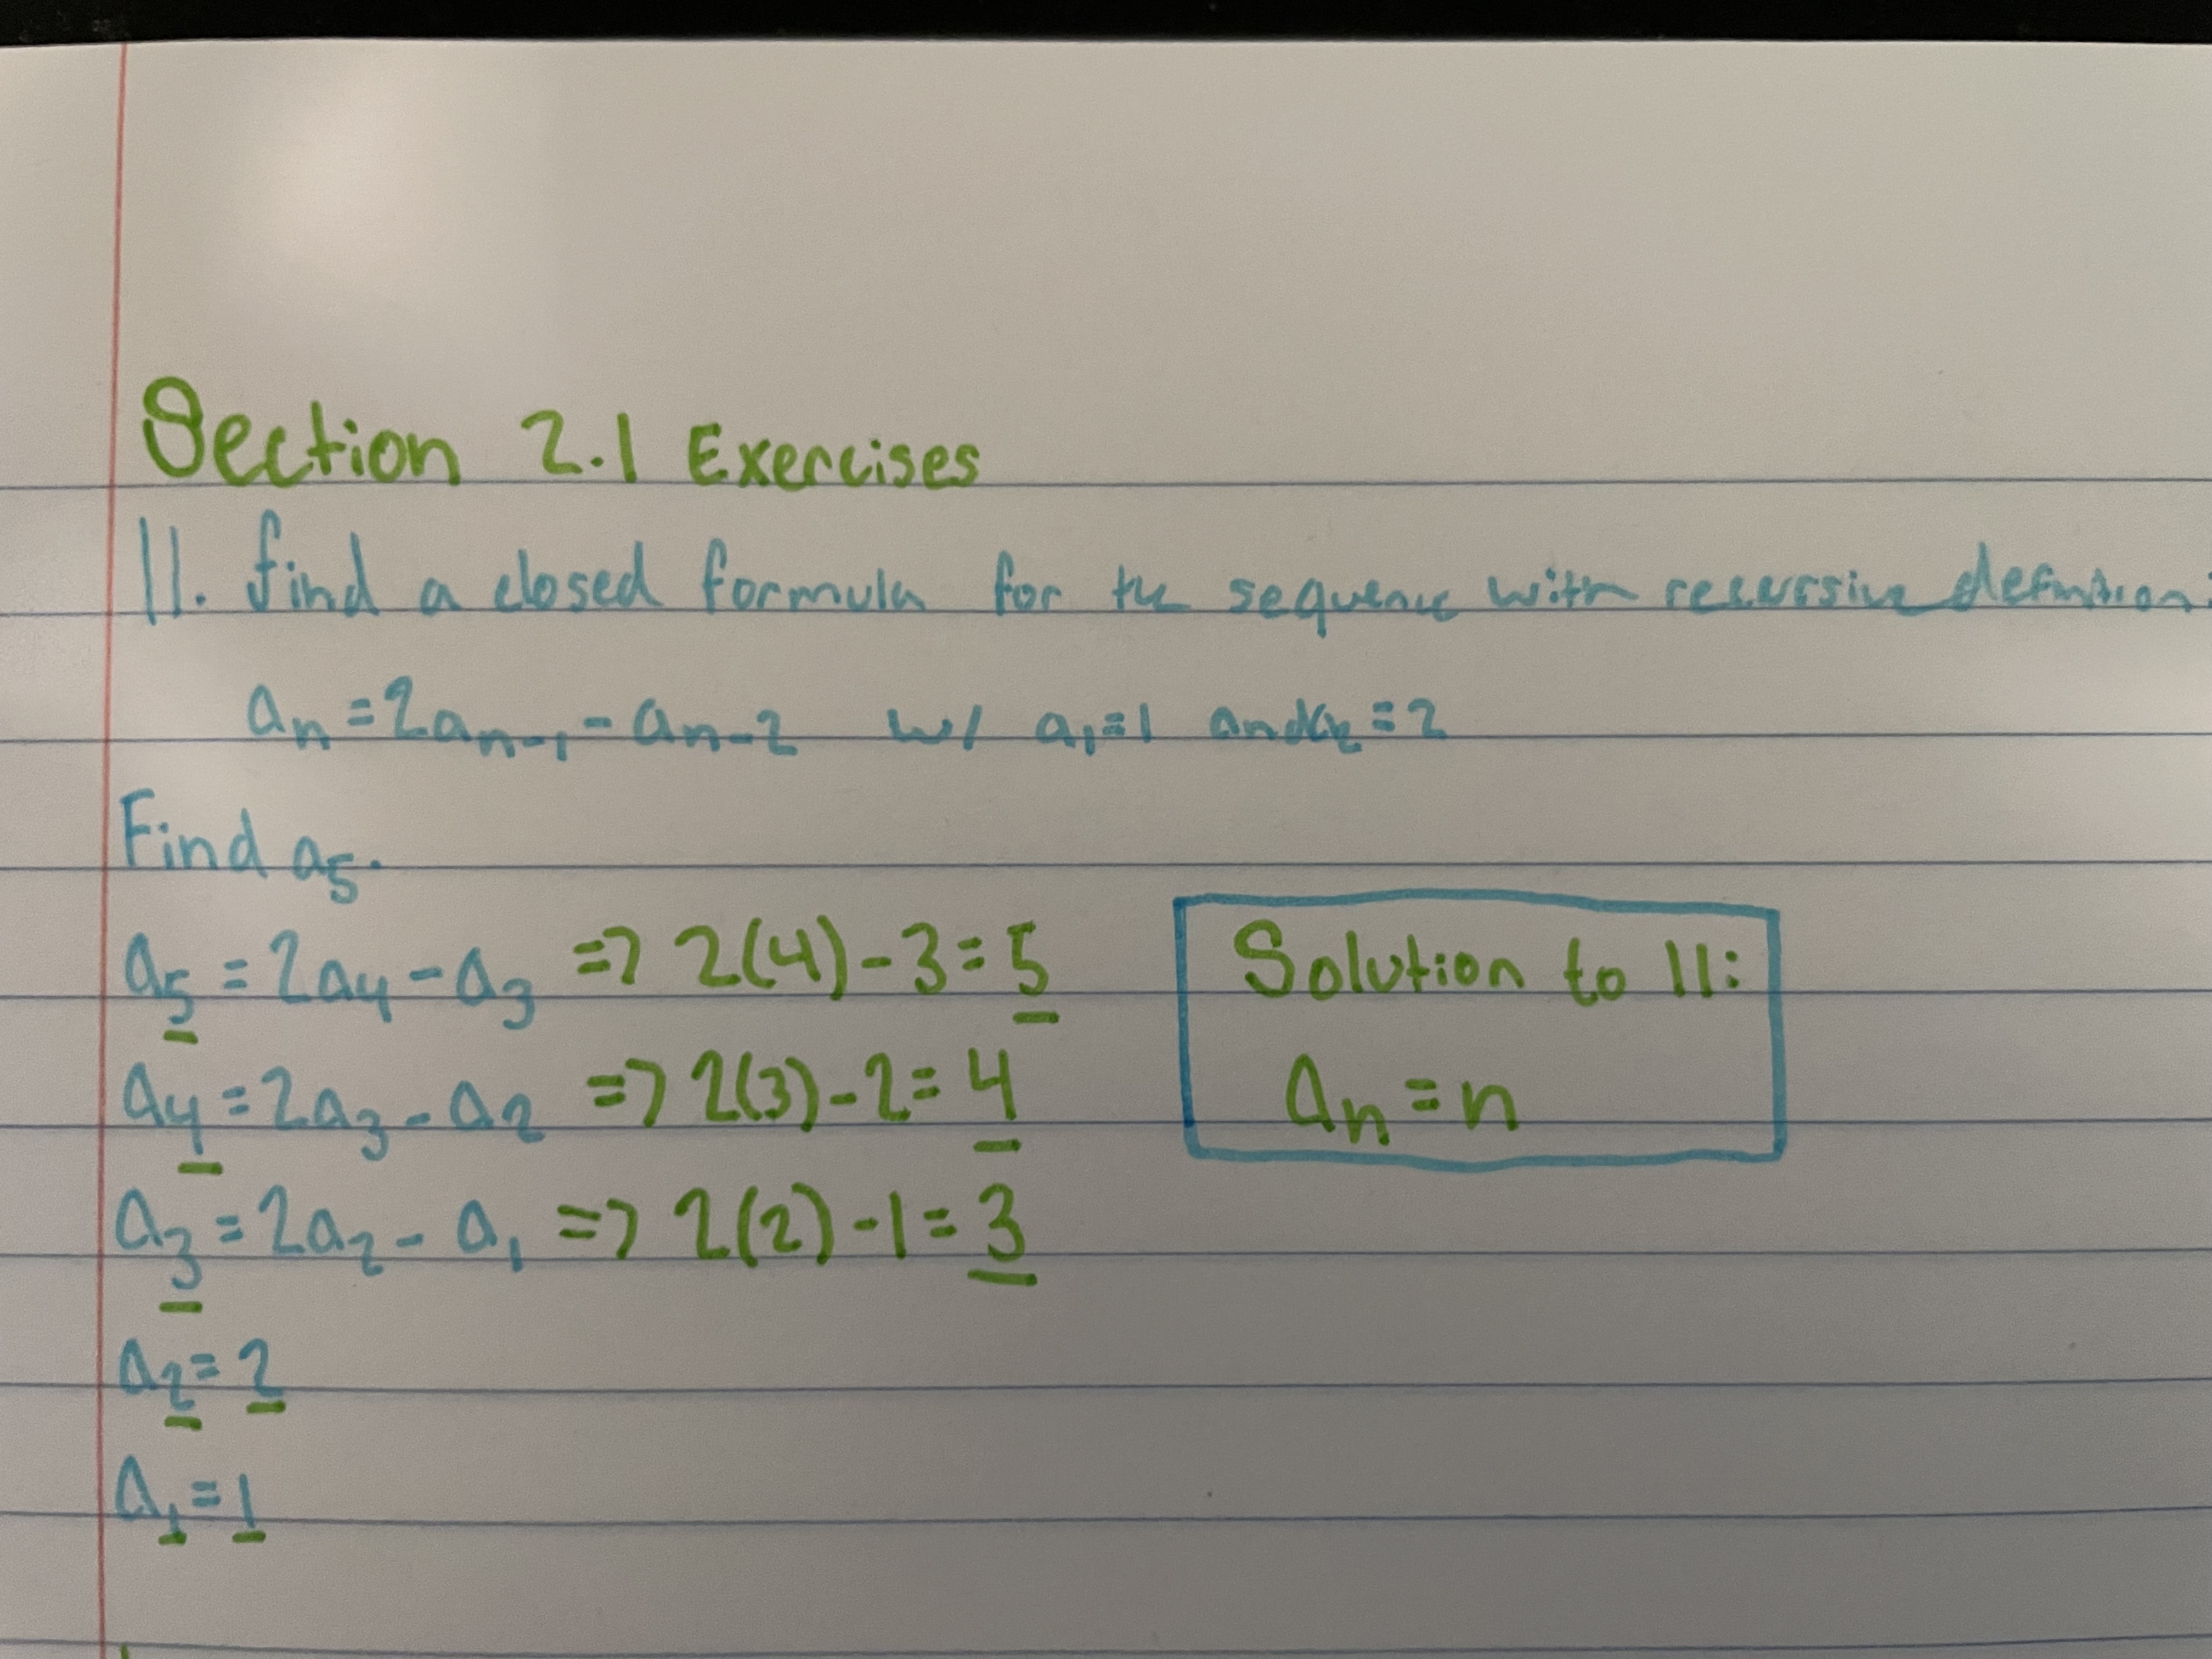 Section 2.1 Exercises
11. find a closed formula for the sequence with recursive definition:
aₙ = 2aₙ₋₁ - aₙ₋₂ w/ a₁=1 and a₂ = 2
Find a₅.
a₅ = 2a₄ - a₃ => 2(4) - 3 = 5
Solution to 11:
a₄ = 2a₃ - a₂ => 2(3) - 2 = 4
aₙ = n
a₃ = 2a₂ - a₁ => 2(2) - 1 = 3
a₂ = 2
a₁ = 1